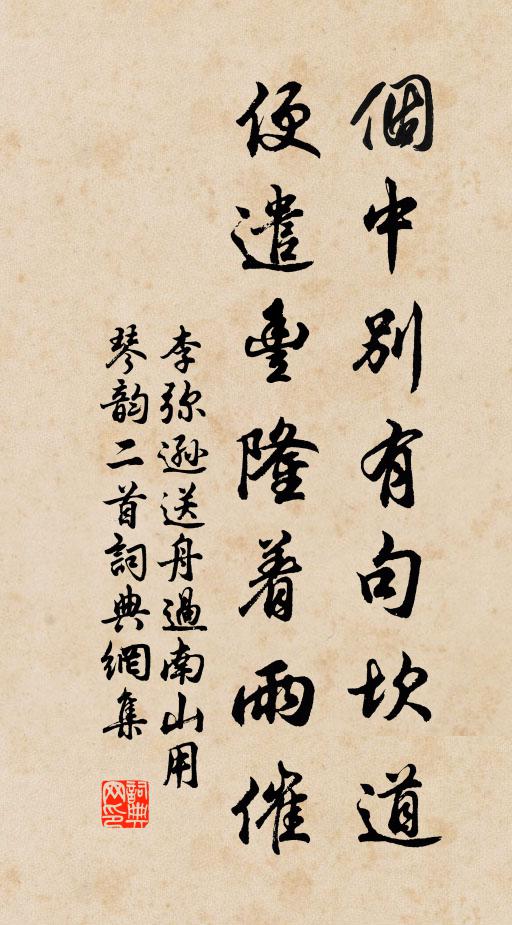 個中別有句坎道
便遣豐隆着雨催
李弥遜送舟過南山用
琴韵二首詞典網集
詞典网印